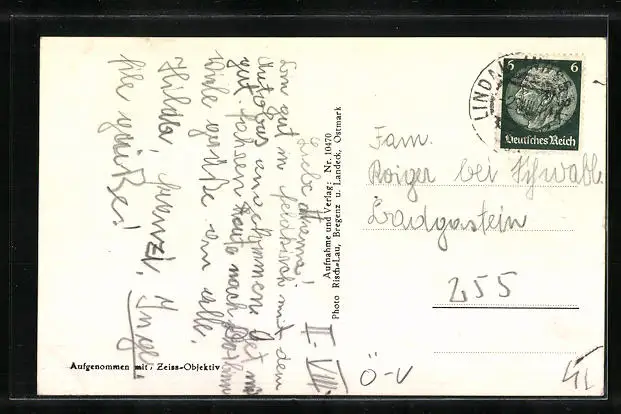 Liebe Mama!
Bin gut in Feldkirch mit dem
Autobus angekommen. Bet
gut. Fahren heute nach
Viele Grüße an alle.
Hilda Frenzi. Inge.
file grüße!
Aufgenommen mit Zeiss-Objektiv
Aufnahme und Verlag: Nr. 10470
Photo Risch-Lau, Bregenz u. Landeck, Ostmark
LINDAU
6 6
Deutsches Reich
Fam.
Roiger bei Schwabl
Badgastein
255
II. VIII.
Ö-V